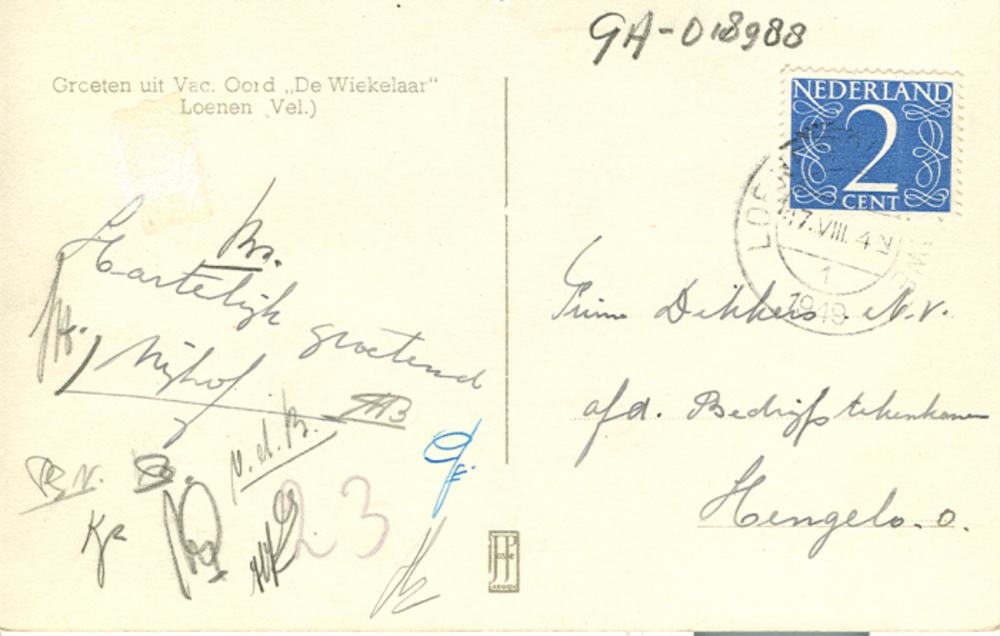 GA-018988
Groeten uit Vac. Oord „De Wiekelaar"
Loenen Vel.)
NEDERLAND
2
CENT
17.VIII. 4
1
1949
Br.
Hartelijk groetend
Nijhof
Firma Dikkers. N.V.
afd. Bedrijfstekenkamer
Hengelo. O.
v.d.B.
23